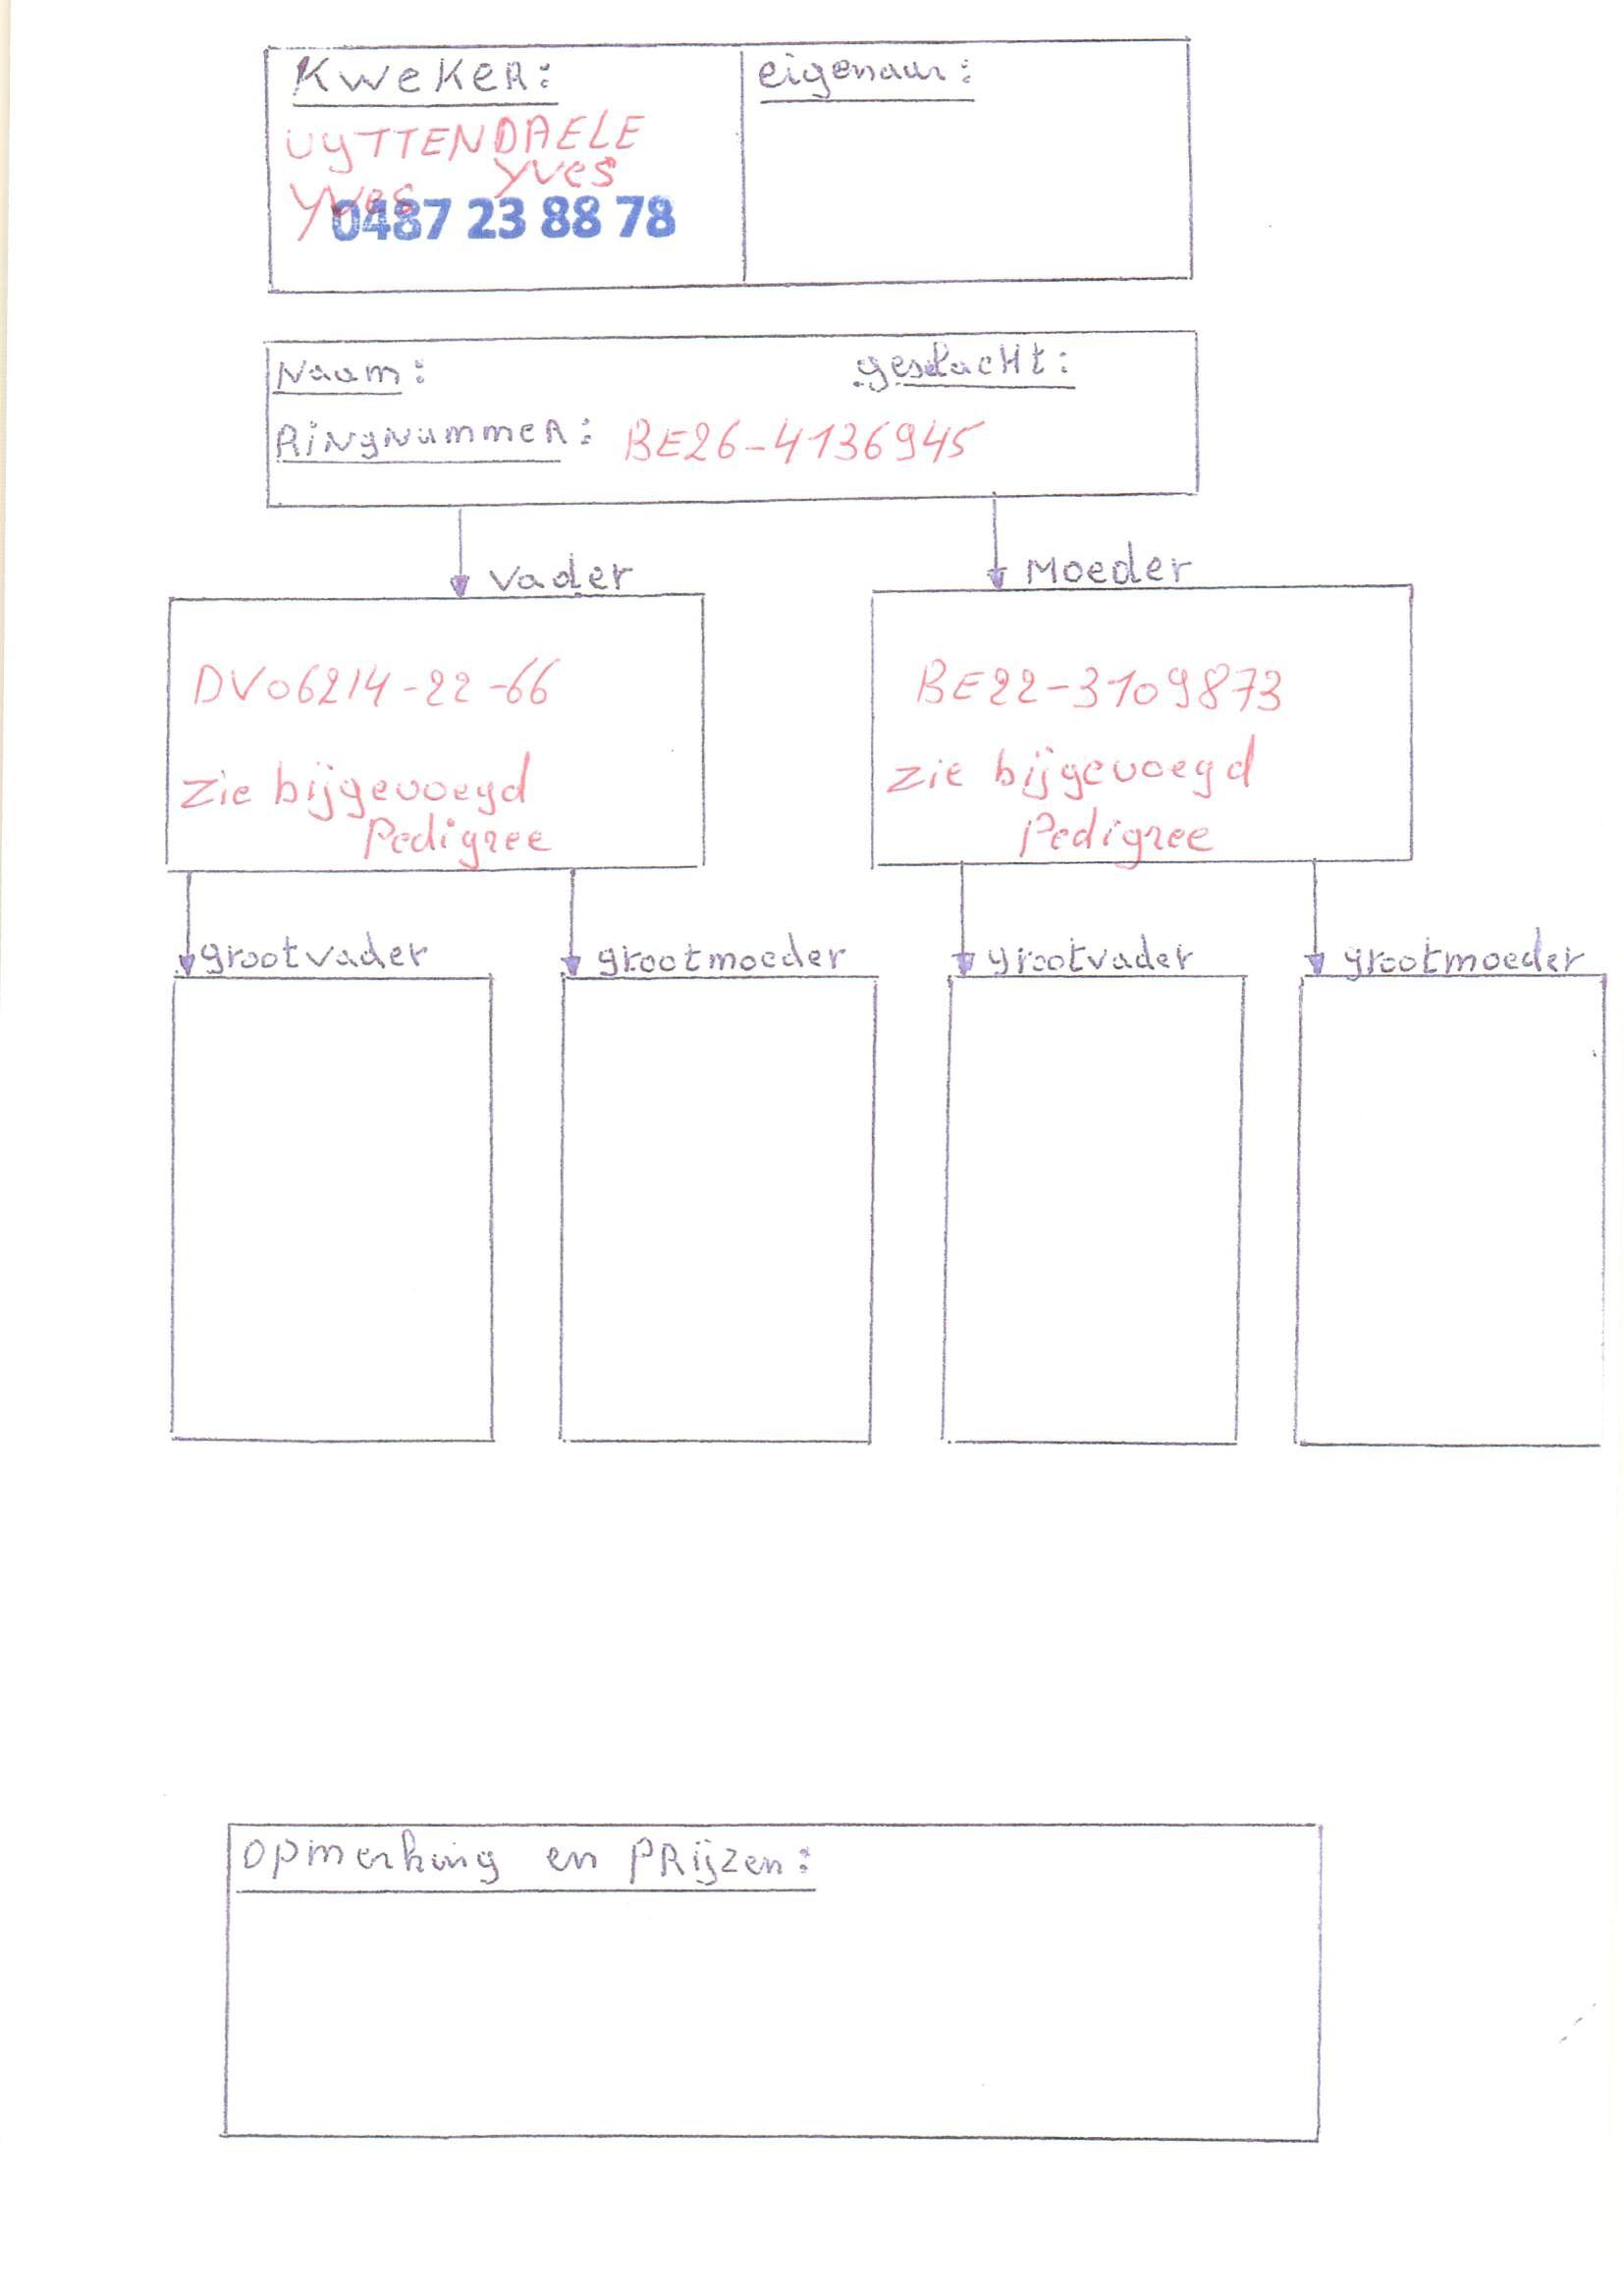 KWEKER:
eigenaar:
UYTTENDAELE
YVES
YVES
0487 23 88 78
Naam:
geslacht:
Ringnummer: BE26-4136945
Vader
Moeder
DV06214-22-66
BE22-3109873
Zie bijgevoegd
Pedigree
Zie bijgevoegd
Pedigree
grootvader
grootmoeder
grootvader
grootmoeder
Opmerking en PRijzen: